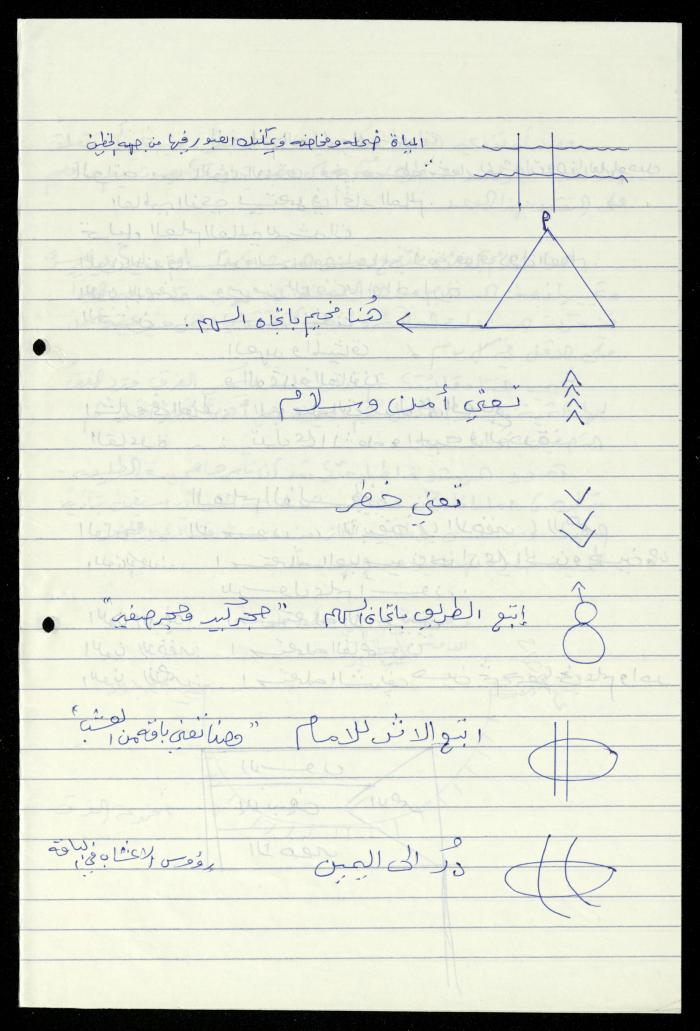 المياة ضحله ومخاضه ويمكنك العبور فيها من جهه الخطين
P
هُنا مخيم باتجاه السهم .
تعني أمن وسلام
تعني خطر
إتبع الطريق باتجاه السهم "حجر كبير وحجر صغير"
اتبع الاثر للامام "وهنا تعني باقه من العشب"
دُر الى اليمين رؤوس الاعشاب في الباقة